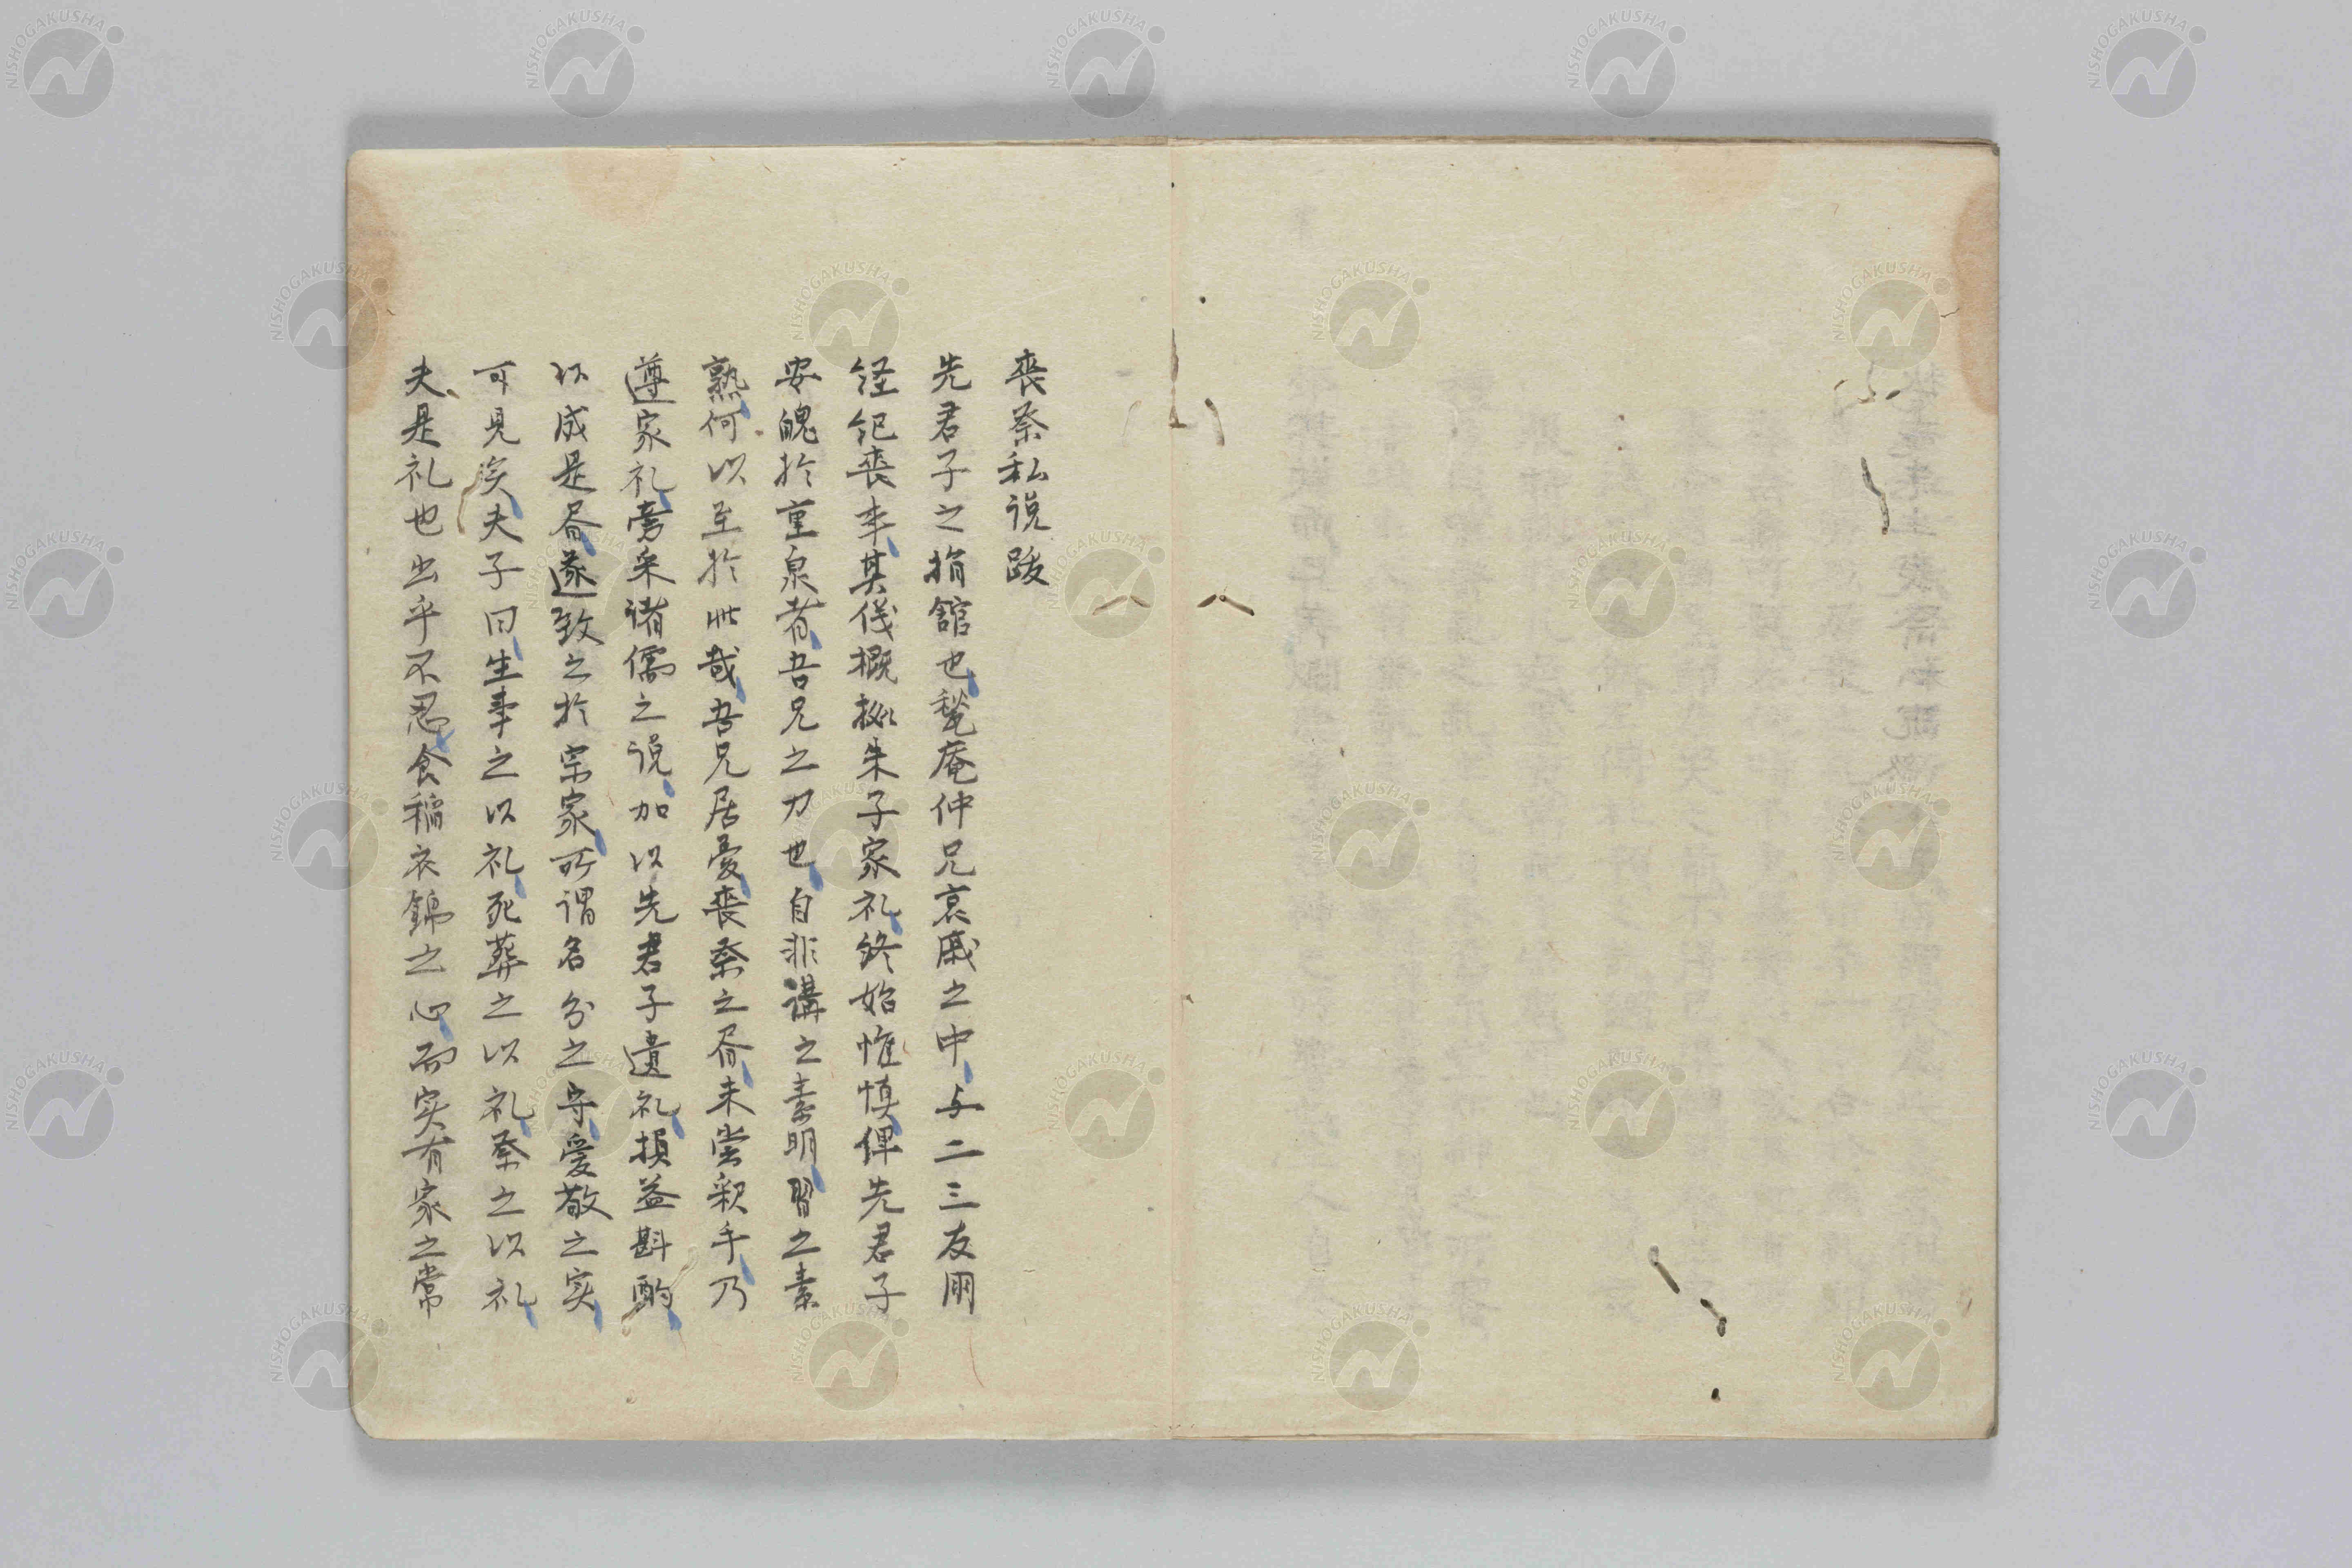 喪祭私説跋
先君子之捐舘也甃庵仲兄哀戚之中与二三友朋
経紀喪事其儀概拠朱子家礼終始惟慎俾先君子
安魄於重泉者吾兄之力也自非講之素明習之素
熟何以至於此哉吾兄居憂喪祭之昏未嘗釈手乃
遵家礼旁采諸儒之説加以先君子遺礼損益斟酌
以成是昏遂致之於宗家所謂名分之守愛敬之实
可見矣夫子曰生事之以礼死葬之以礼祭之以礼
夫是礼也出乎不忍食稲衣錦之心而实有家之常
NISHOGAKUSHA